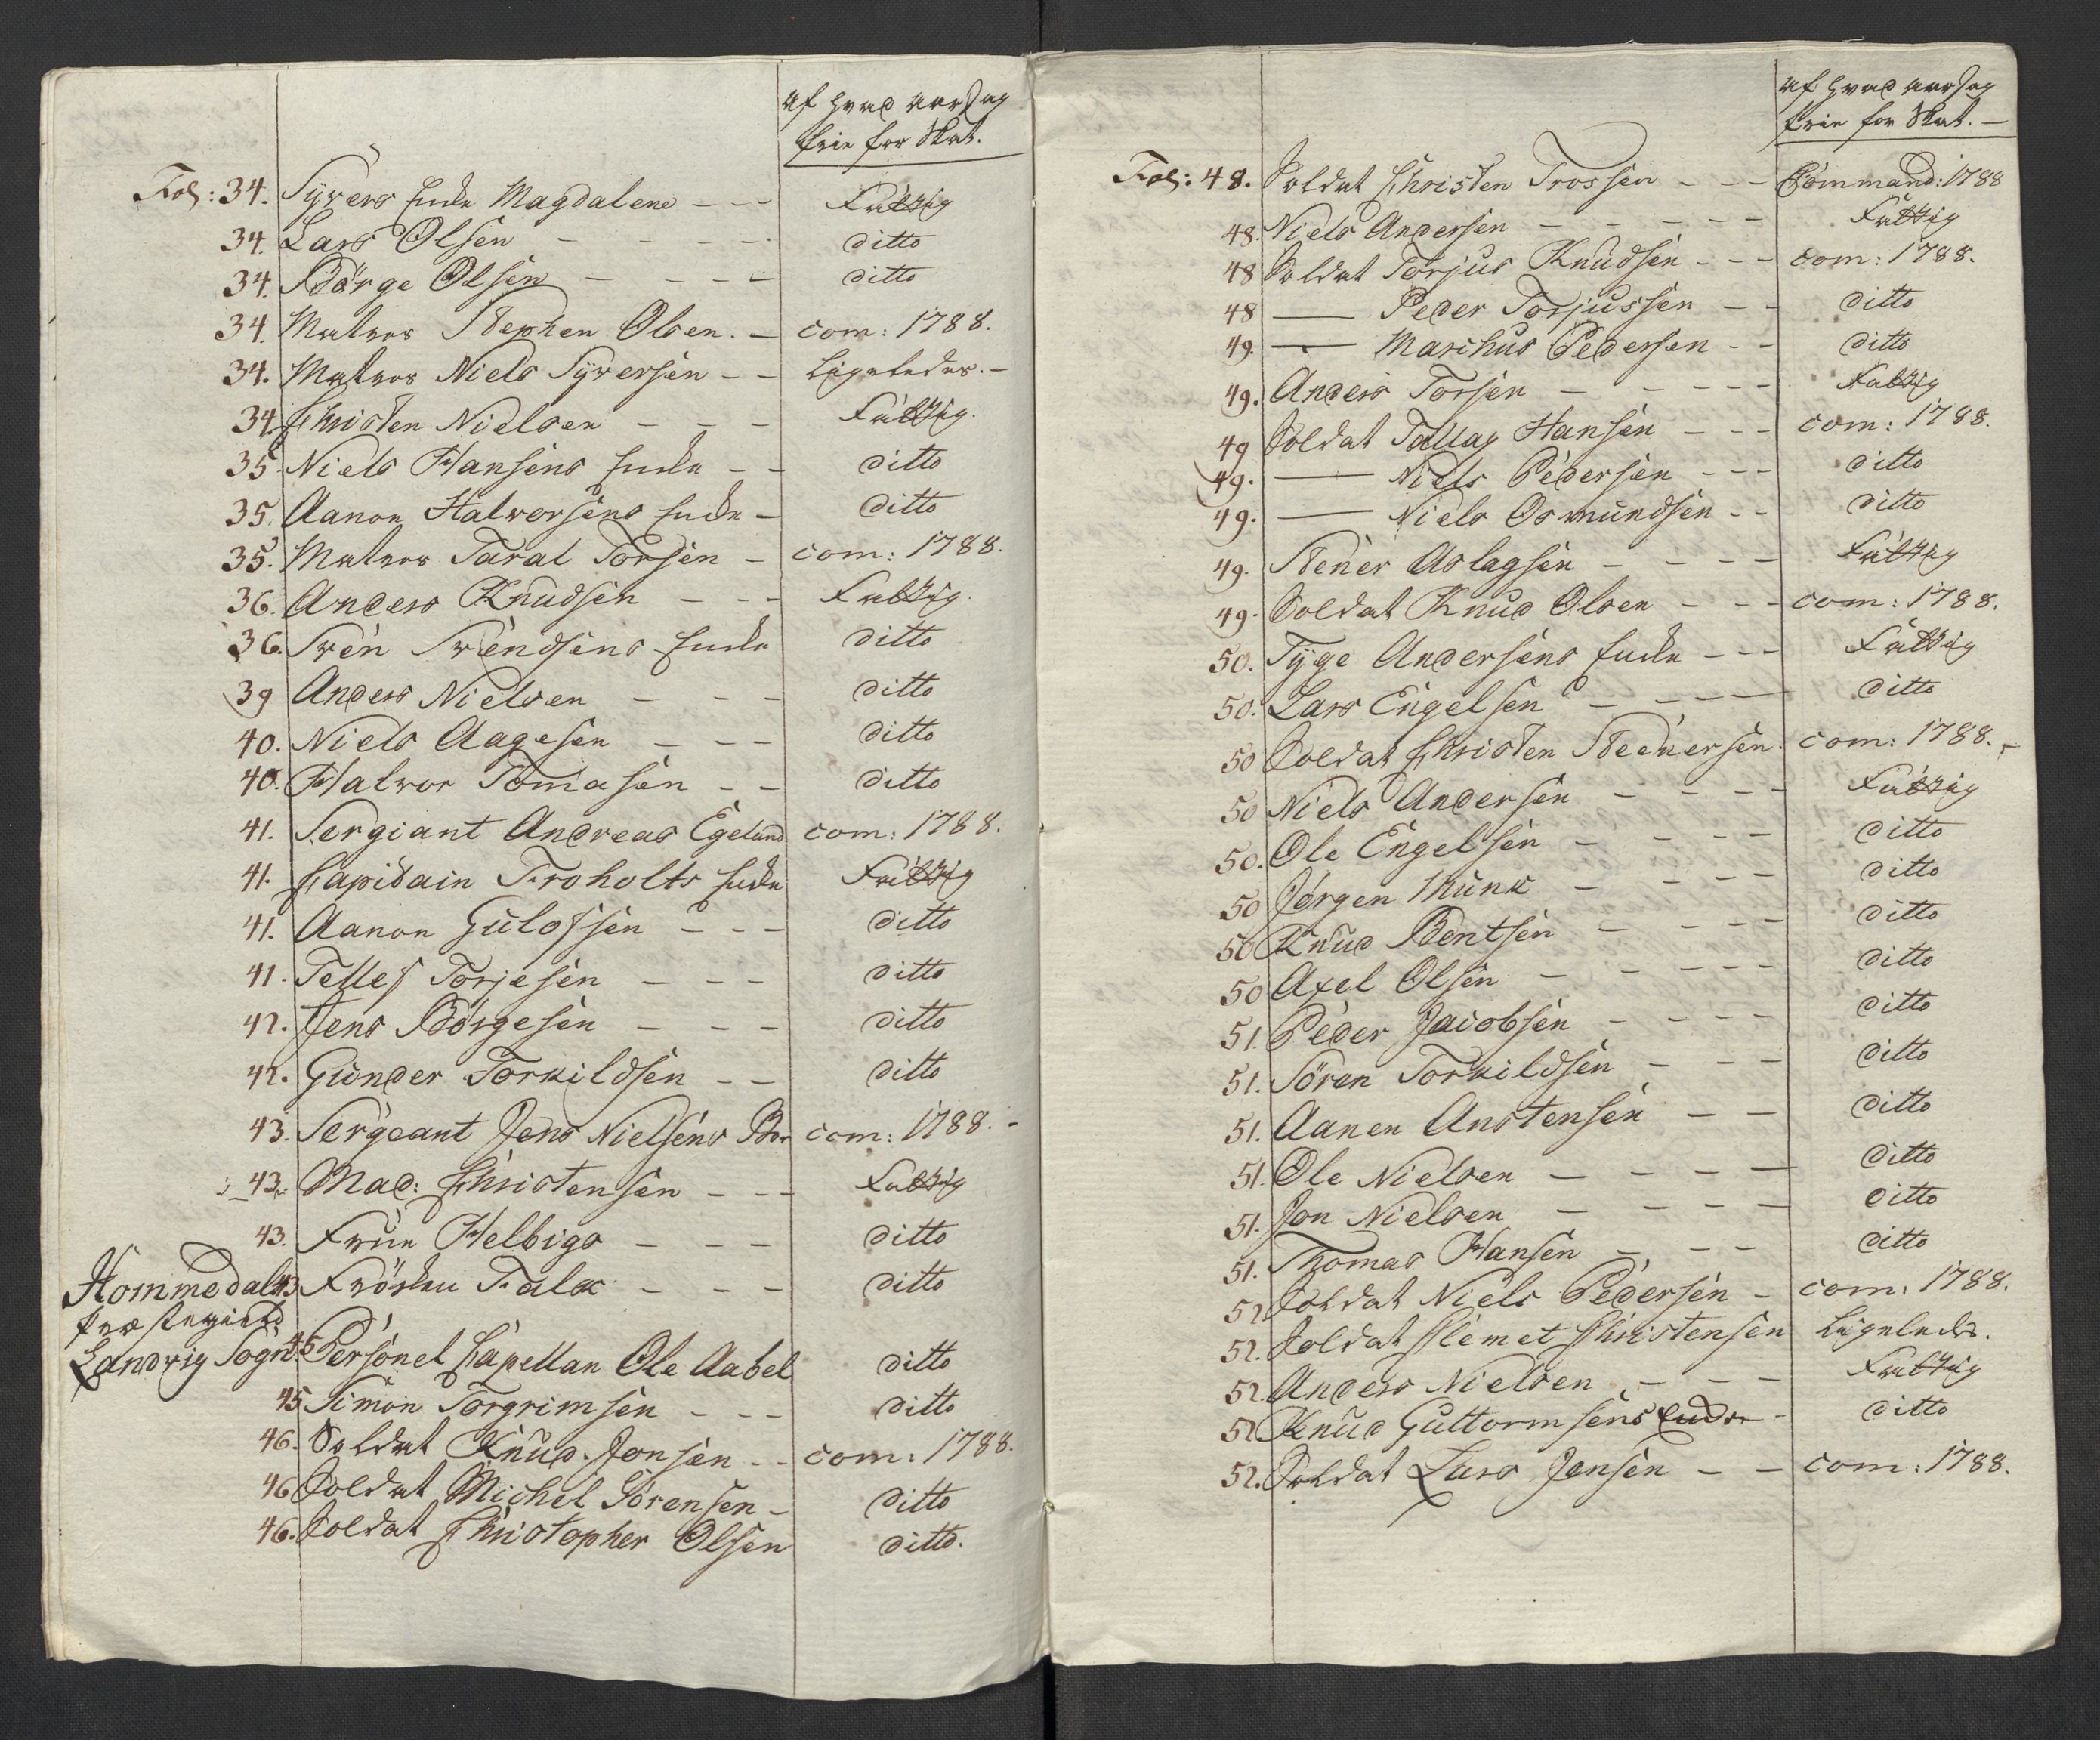 Af hvad aarsag
frie for Skat.
Fol: 34. Syvers Encke Magdalene - - - Fattig
34. Lars Olsen - - - - ditto
34. Börge Olsen - - - - ditto
34. Matros Stephen Olsen. - com: 1788.
34. Matros Niels Syversen - - Ligeledes. -
34. Christen Nielsen - - - Fattig.
35. Niels Hansens Encke - - ditto
35. Aanon Halvorsens Encke - ditto
35. Matros Taral Torsen - com: 1788.
36. Anders Knudsen - - - Fattig.
36. Sven Svendsens Encke ditto
39 Anders Nielsen - - - ditto
40. Niels Aagesen - - - ditto
40. Halvor Tomasen - - ditto
41. Sergiant Andreas Egelund com: 1788.
41. Capitain Froholts Encke Fattig
41. Aanon Gulofsen - - - ditto
41. Tellef Torjesen - - - ditto
42. Jens Börgesen - - - ditto
42. Gunder Torkildsen - - ditto
43. Sergeant Jens Nielsens com: 1788. -
43. Mad: Christensen - - - Fattig
43. Frue Helbigs - - - ditto
Hommedals 43 Fröken Falck - - - ditto
Præstegield
Landvig Sogn 45 Personel Capellan Ole Aabel ditto
45 Simon Torgrimsen - - - ditto
46. Soldat Knud Jonsen - - com: 1788.
46 Soldat Michel Sörensen - ditto
46. Soldat Christopher Olsen ditto.
Af hvad aarsag
frie for Skat. -
Fol: 48. Soldat Christen Trossen - - - Command: 1788
48. Niels Andersen - - - - - Fattig
48 Soldat Torjus Knudsen - - - com: 1788.
48 — Peder Torjussen - - ditto
49. — Marchus Pedersen - - ditto
49. Anders Torsen - - - - - Fattig
49 Soldat Tallag Hansen - - - com: 1788.
49. — Niels Pedersen - - - ditto
49. — Niels Osmundsen - - ditto
49. Stener Aslagsen - - - - Fattig
49. Soldat Knud Olsen - - - com: 1788.
50. Tyge Andersens Encke - - - Fattig
50. Lars Engelsen - - - ditto
50 Soldat Christen Steenersen. com: 1788. -
50 Niels Andersen - - - - Fattig
50. Ole Engelsen - - - - ditto
50 Jörgen Munk - - - - ditto
50 Knud Bentsen - - - - ditto
50 Axel Olsen - - - - - ditto
51. Peder Jacobsen - - - - ditto
51. Sören Torkildsen - - - ditto
51. Aanen Anstensen - - ditto
51. Ole Nielsen - - - - ditto
51. Jon Nielsen - - - - ditto
51. Thomas Hansen - - - ditto
52 Soldat Niels Pedersen - com: 1788.
52. Soldat Clemet Christensen Ligeleds.
52. Anders Nielsen - - - Fattig
52 Knud Guttormsens Encke - ditto
52. Soldat Lars Jensen - - com: 1788.